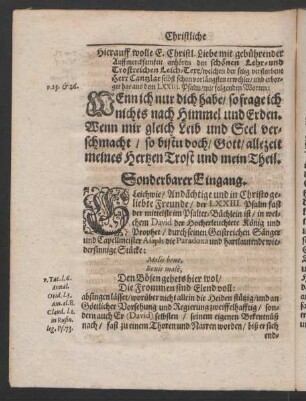 Christliche
Hierauff wolle E. Christl. Liebe mit gebührender
Auffmercksamkeit anhören den schönen Lehr- und
Trostreichen Leich-Text / welchen der selig verstorbene
Herr Cantzlar selbst schon vor längsten erwehlet / und
v. 25. & 26.
her aus dem LXXIII. Psalm / mit folgenden Worten:
WEnn ich nur dich habe / so frage ich
nichts nach Himmel und Erden.
Wenn mir gleich Leib und Seel ver-
schmacht / so bistu doch / Gott / allezeit
meines Hertzen Trost und mein Theil.
Sonderbarer Eingang.
GLeichwie / Andächtige und in Christo ge-
liebte Freunde / der LXXIII. Psalm fast
der mittelste im Psalter-Büchlein ist / in wel-
chem David der Hocherleuchtete König und
Prophet / durch seinen Geistreichen Sänger
und Capellmeister Asaph die Paradoxa und hartlautende wie-
dersinnige Stücke:
Malis bene,
Bonis male,
v. Tac. l. 6.
annal.
Ovid. l. 3.
Am. el. 8.
Claud. l. 1.
in Rufin.
leg. Ps. 73.
Den Bösen gehets hier wol /
Die Frommen sind Elend voll:
absingen lässet / worüber nicht allein die Heiden stutzig / und an
Göttlicher Vorsehung und Regierung zweiffelhafftig / son-
dern auch Er (David) selbsten / seinem eigenen Bekentnüß
nach / fast zu einem Thoren und Narren worden / biß er sich
end-